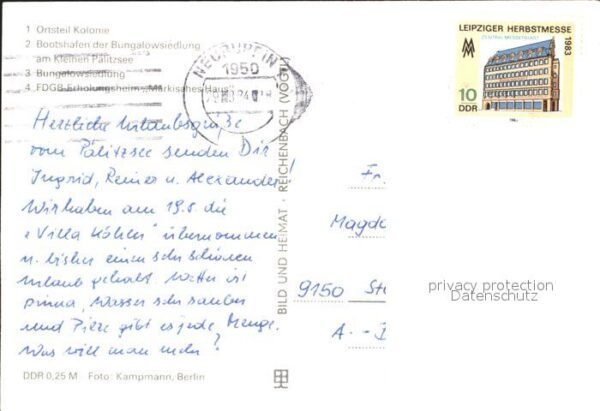 1 Ortsteil Kolonie
2 Bootshafen der Bungalowsiedlung
am Kleinen Pälitzsee
3 Bungalowsiedlung
4 FDGB-Erholungsheim „Märkisches Haus“
NEURUPPIN
1950
LEIPZIGER HERBSTMESSE
1983
ZENTRAL-MESSEPALAST
10
DDR
Herzliche Urlaubsgrüße
vom Pälitzsee senden Dir
Ingrid, Reiner u. Alexander!
Wir haben am 19.8 die
„Villa Köhler“ übernommen
u. bisher einen sehr schönen
Urlaub gehabt. Wetter ist
prima, Wasser sehr sauber
und Pilze gibt es jede Menge.
Was will man mehr?
BILD UND HEIMAT · REICHENBACH (VOGTL)
Fr.
Magda
9150 St
A.-
privacy protection
Datenschutz
DDR 0,25 M Foto: Kampmann, Berlin